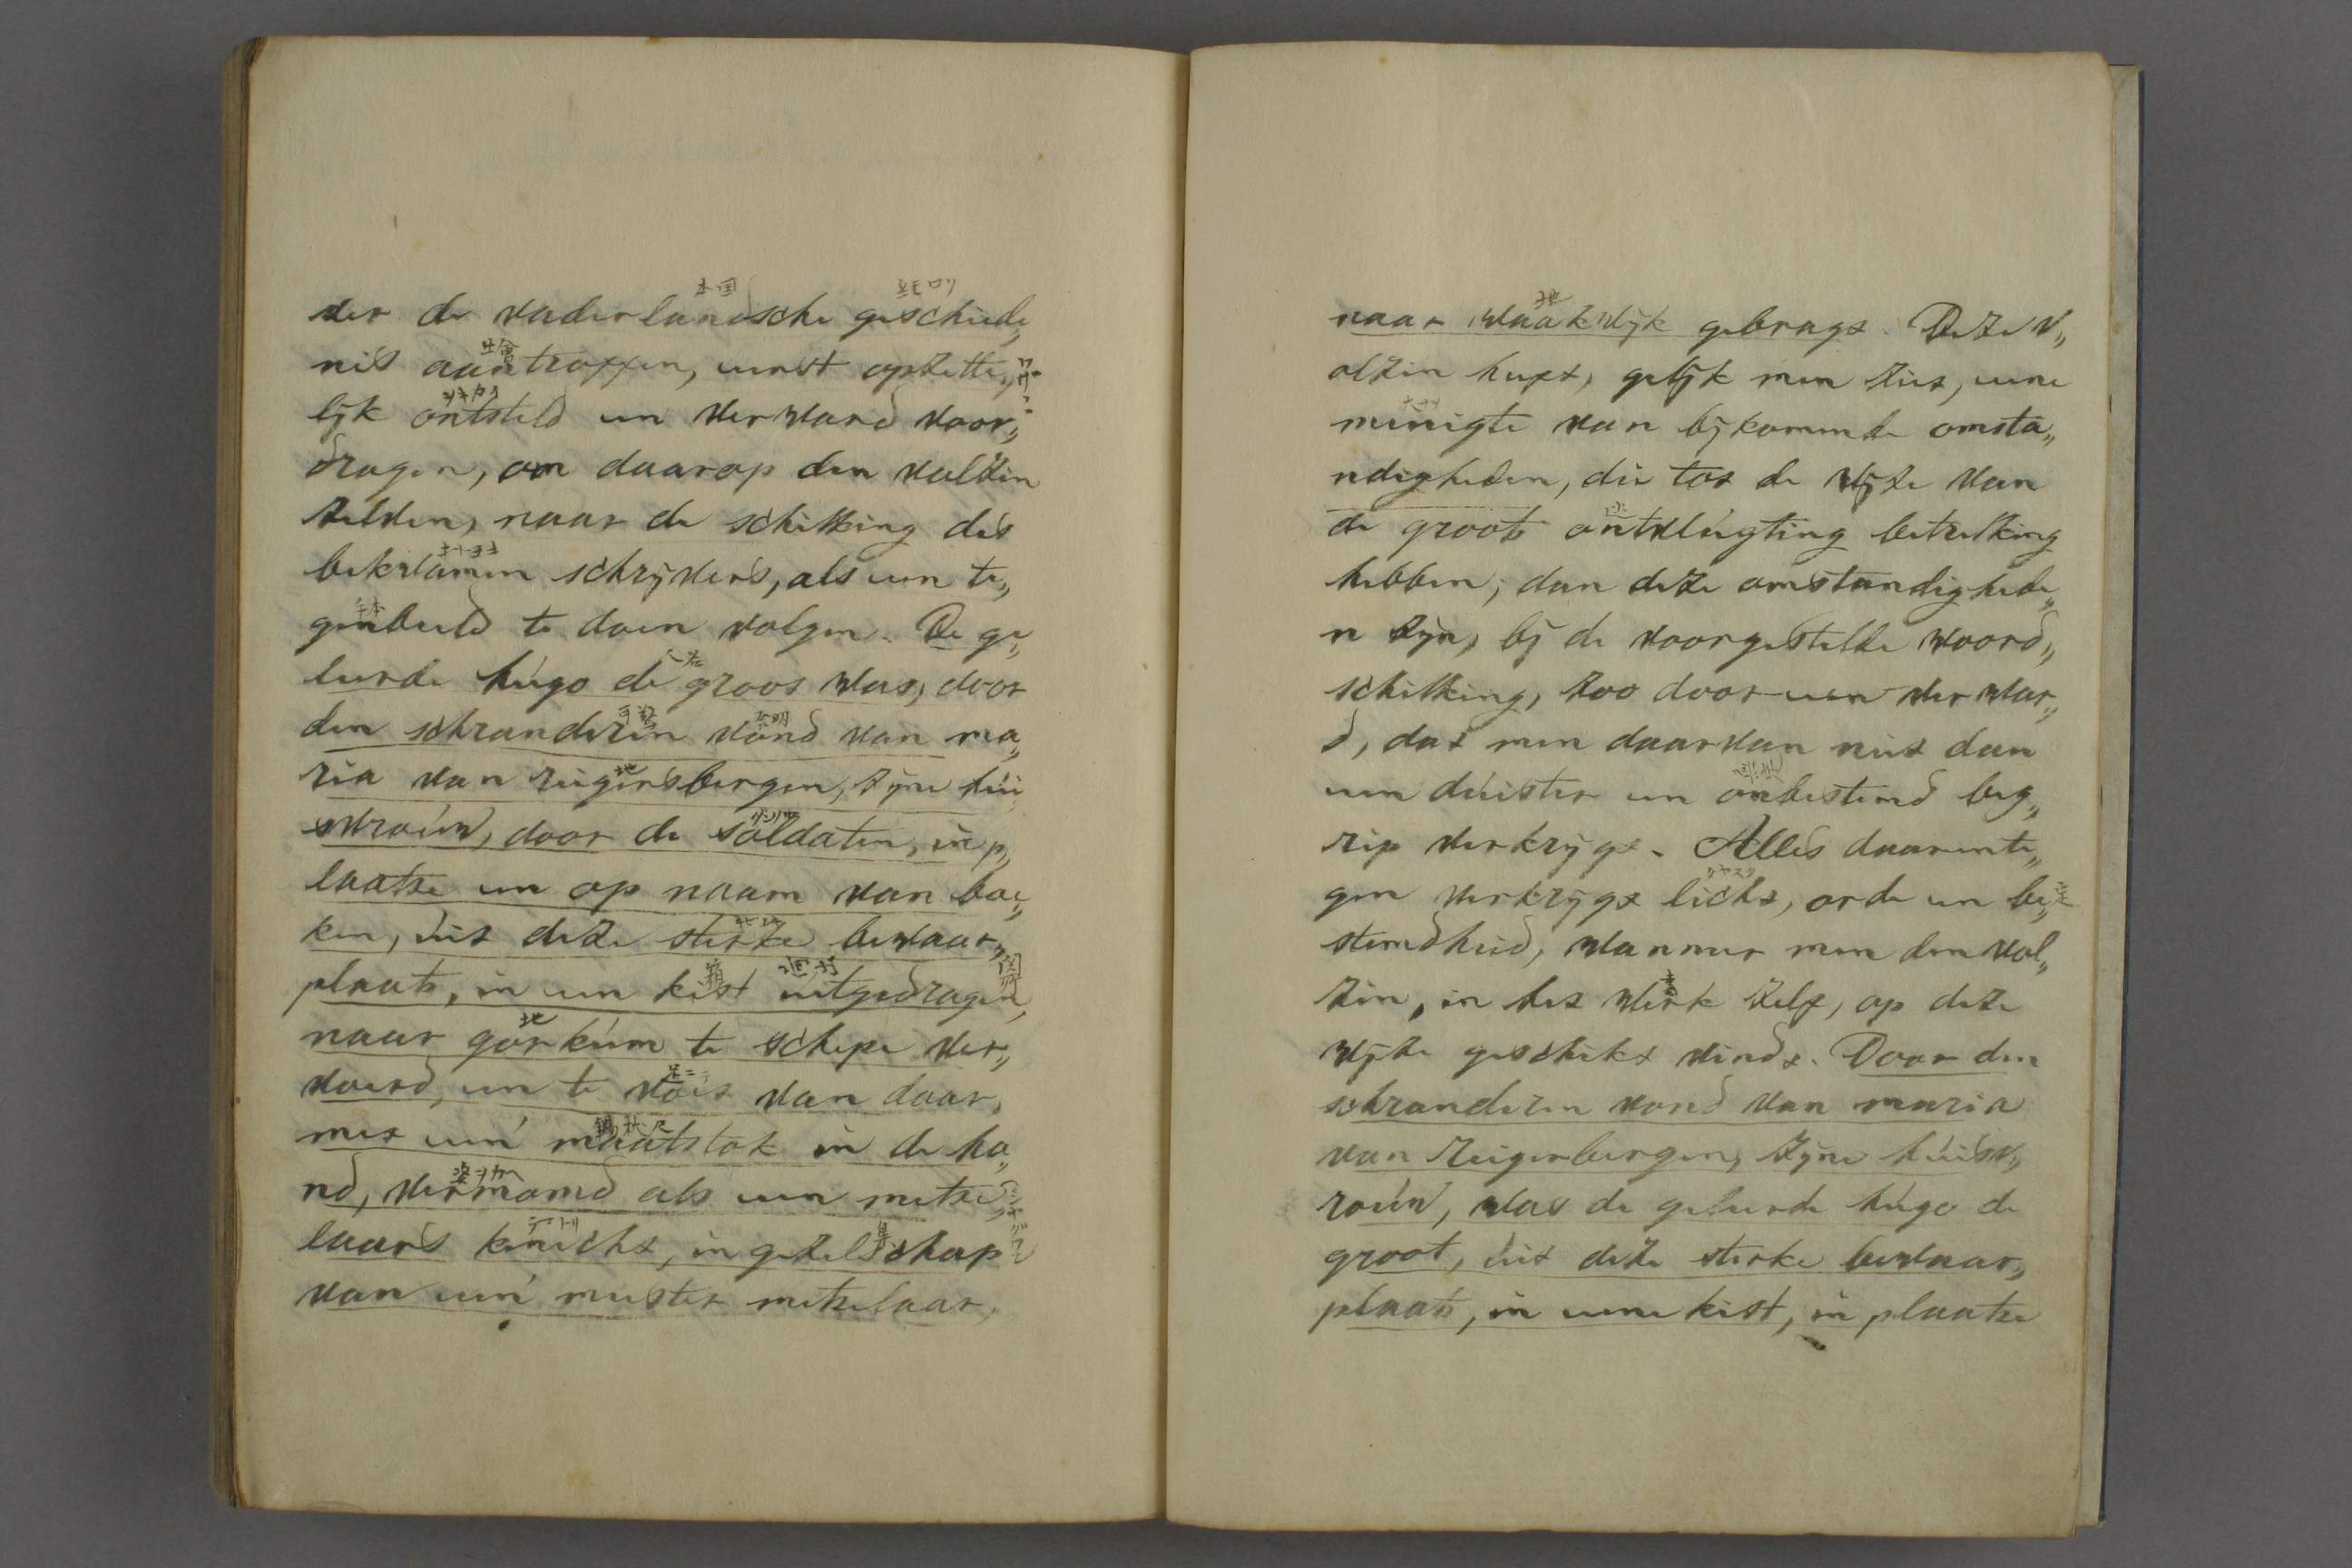 der de vaderlandsche geschiede„
nis aantroffen, eerst opzette„
lijk ontsteld en verward voor„
dragen, om daarop den volzin
zelven, naar de schikking des
bekwamen schrijvers, als een te„
genbeeld te doen volgen. De ge„
leerde húgo de groot was, door
den schranderen vond van ma„
ria van reigersbergen, zijne húi
svroúw, door de soldaten, in p„
laatse en op naam van boe„
ken, úit deze sterke bewaar„
plaats, in een kist úitgedragen,
naar gorkúm te schepe ver„
voerd, en te voet van daar,
met een maatstok in de ha„
nd, vermomd als een metse„
laars knecht, in gezelschap
van een meester metselaar,
naar waalwijk gebragt. Deze v„
olzin heeft, gelijk men ziet, eene
menigte van bijkomende omsta„
ndigheden, die tot de wijze van
de groots ontvlúgting betrekking
hebben; dan deze omstandighede„
n zijn, bij de voorgestelde woord„
schikking, zoo door een verwar„
d, dat men daarvan niet dan
een dúister en onbestemd beg„
rip verkrijgt. Alles daarente„
gen verkrijgt licht, orde en be„
stemdheid, wanneer men den vol„
zin, in het werk zelf, op deze
wijze geschikt vindt. Door den
schranderen vond van maria
van reigersbergen, zijne húisv„
roúw, was de geleerde húgo de
groot, úit deze sterke bewaar„
plaats, in eene kist, in plaatse